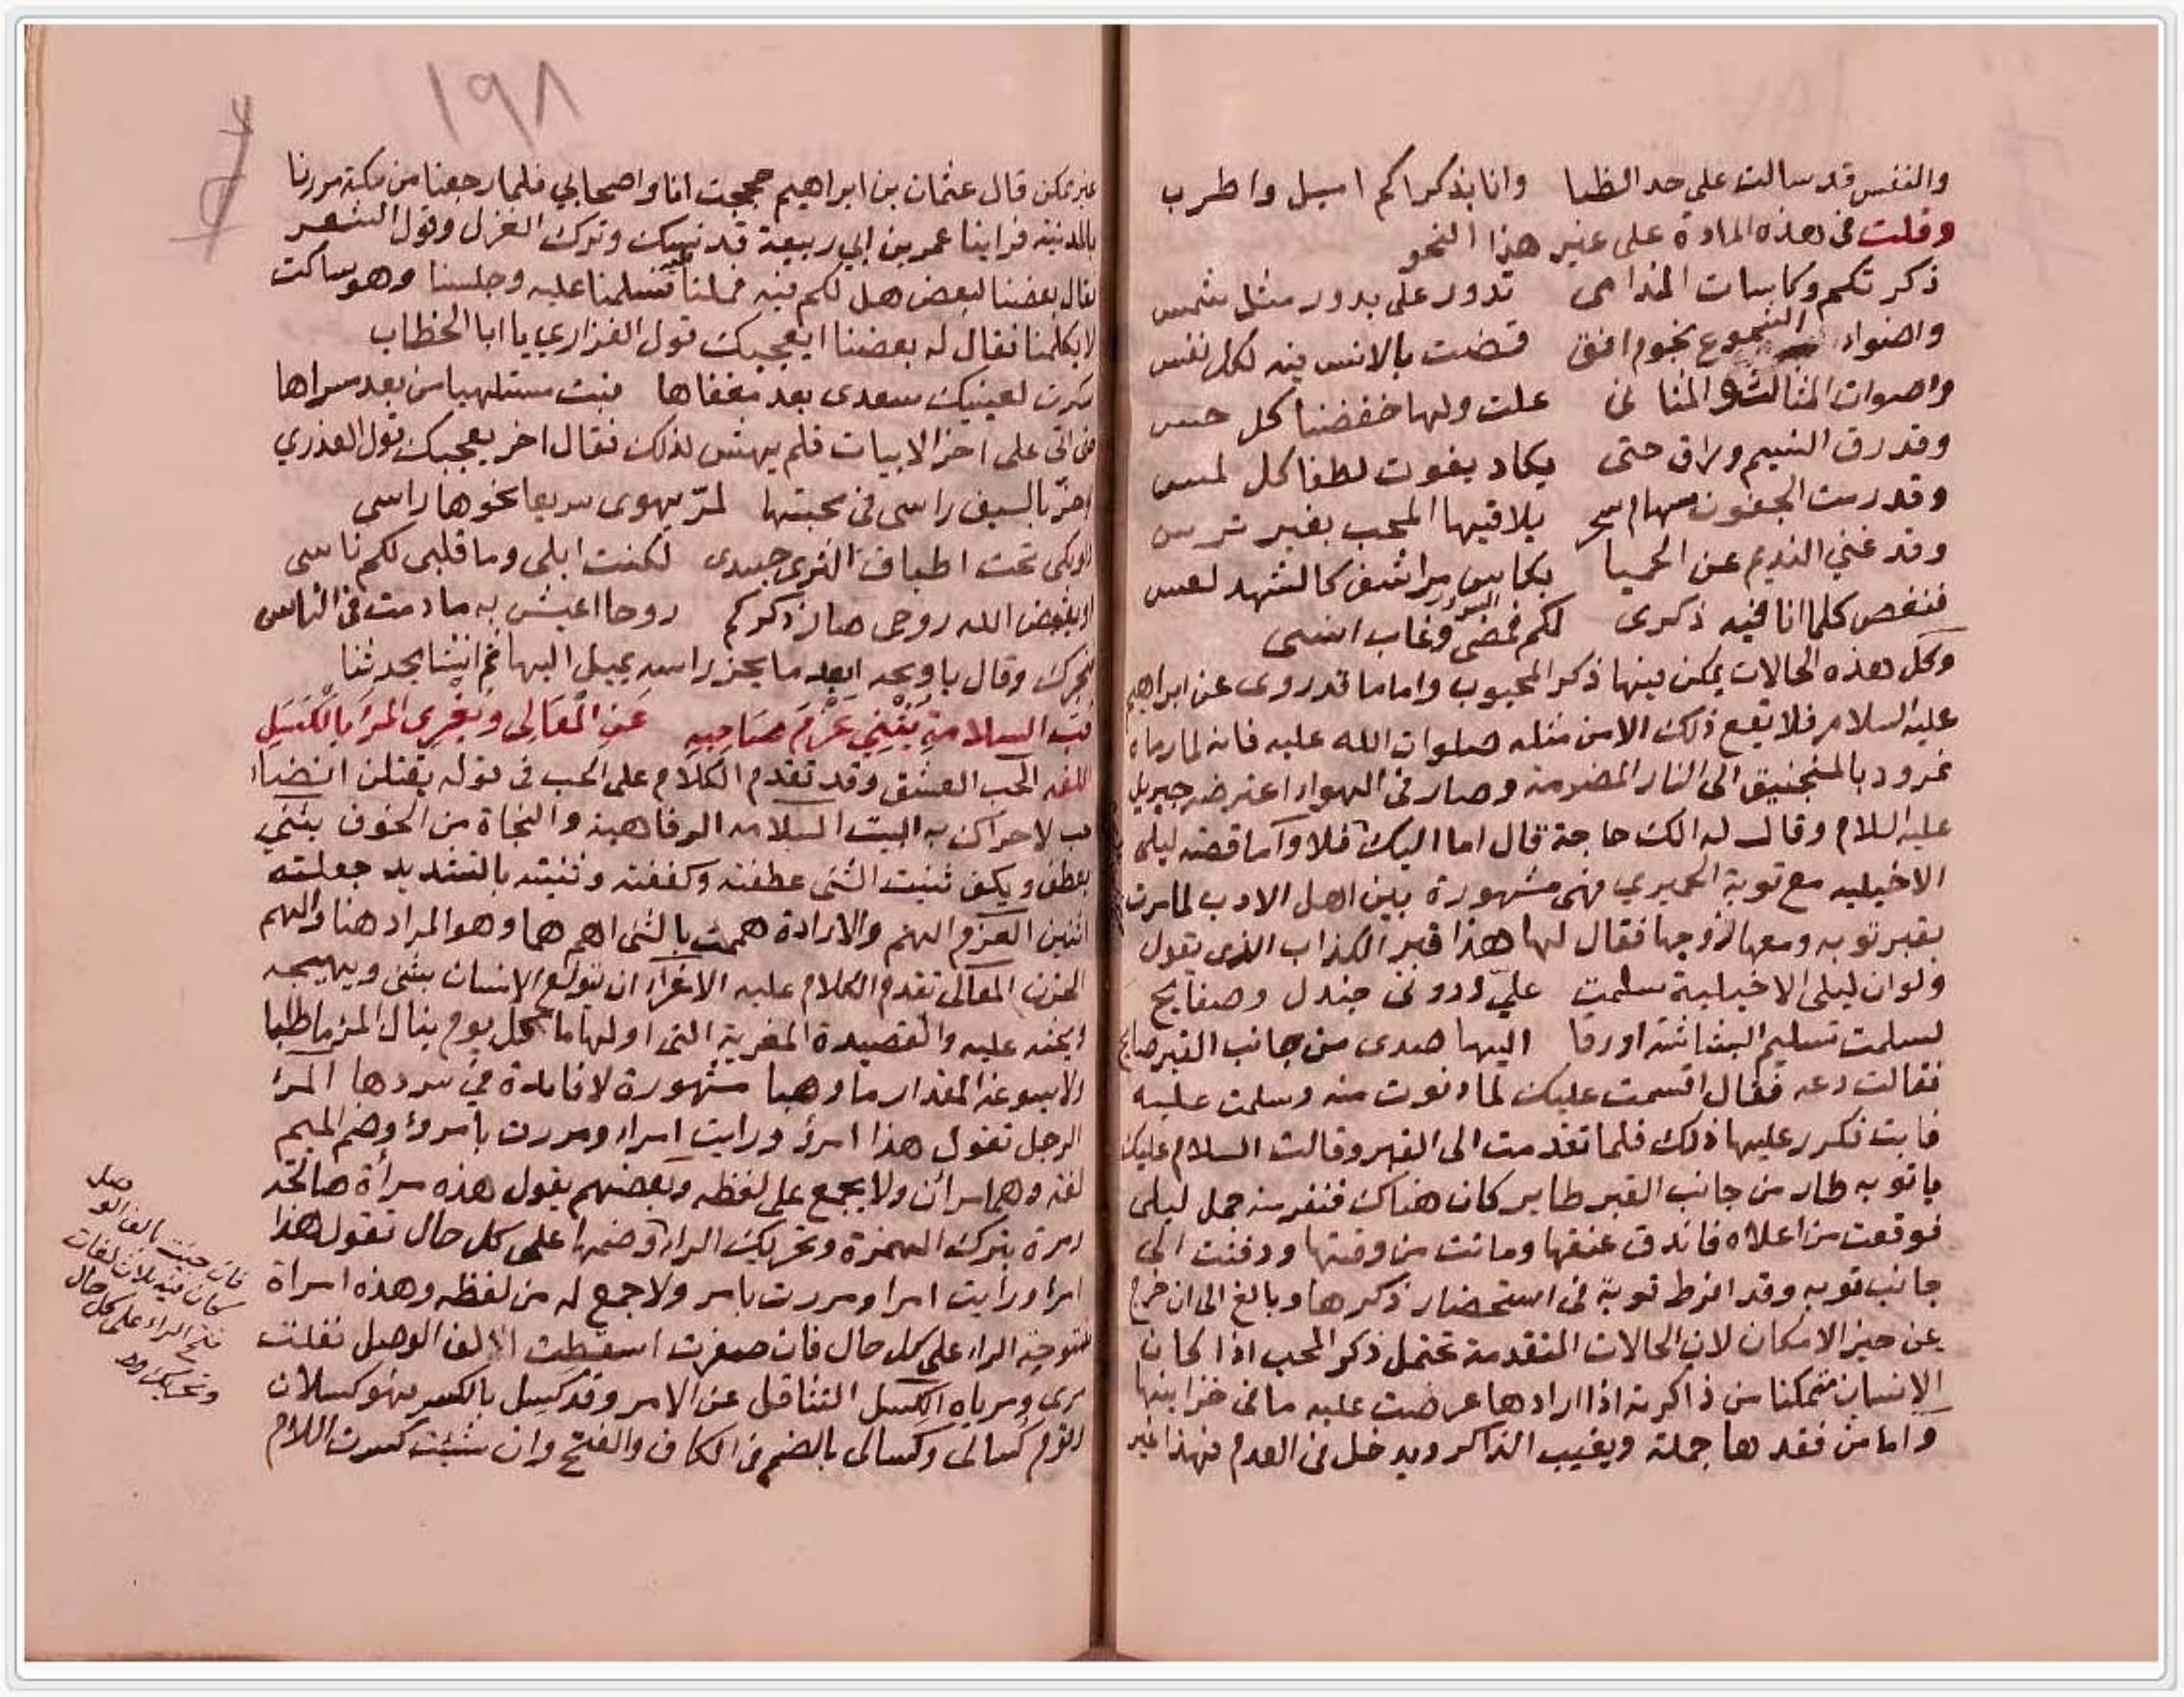 والنفس قد سالت على حد الظبا وانا بذكراكم اميل واطرب
وقلت في هذه المادة على غير هذا النحو
ذكرتكم وكاسات الندامى تدور على بدور مثل شمس
واضواء الشموع نجوم افق قضت بالانس فيه لكل نفس
واصوات المثالث والمثانى علت ولها خفضنا كل حس
وقد رق النسيم وراق حتى يكاد يفوت لطفا كل لمس
وقد رمت الجفون سهام سحر يلاقيها المحب بغير ترس
وقد غني النديم عن الحميا بكاس مراشف كالشهد لعس
فنغص كلما انا فيه ذكرى لكم فمضى السرور وغاب انسى
وكل هذه الحالات يمكن فيها ذكر المحبوب واما ما قد روى عن ابراهيم
عليه السلام فلا يقع ذلك الا من مثله صلوات الله عليه فانه لما رماه
نمرود بالمنجنيق الى النار المضرمة وصار فى الهواء اعترضه جبريل
عليه السلام وقال له الك حاجة قال اما اليك فلا واما قصة ليلى
الاخيليه مع توبة الحميري فهى مشهورة بين اهل الادب لما مرت
بقبر توبه ومعها زوجها فقال لها هذا قبر الكذاب الذى يقول
ولو ان ليلى الاخيلية سلمت عليّ ودونى جندل وصفايح
لسلمت تسليم البشاشة او زقا اليها صدى من جانب القبر صايح
فقالت دعه فقال اقسمت عليك لما دنوت منه وسلمت عليه
فابت فكرر عليها ذلك فلما تقدمت الى القبر وقالت السلام عليك
يا توبه طار من جانب القبر طاير كان هناك فنفر منه جمل ليلى
فوقعت من اعلاه فاندق عنقها وماتت من وقتها ودفنت الى
جانب توبه وقد افرط توبة فى استحضار ذكرها وبالغ الى ان خرج
عن حيز الامكان لان الحالات المتقدمة تحتمل ذكر المحب اذا كان
الانسان متمكنا من ذاكرته اذا ارادها عرضت عليه ما فى خزانتها
واما من فقدها جملة ويغيب الذاكر ويدخل فى العدم فهذا غير
١٩٨
غير ممكن قال عثمان بن ابراهيم حججت انا واصحابي فلما رجعنا من مكة مررنا
بالمدينه فراينا عمر بن ابي ربيعة قد نسك وترك الغزل وقول الشعر
فقال بعضنا لبعض هل لكم فيه فملنا فسلمنا عليه وجلسنا وهو ساكت
لا يكلمنا فقال له بعضنا ايعجبك قول الفزاري يا ابا الخطاب
سرت لعينيك سعدى بعد مغفاها فبت مستلهيا من بعد مسراها
حتى اتى على اخر الابيات فلم يهش لذلك فقال اخر يعجبك قول العذري
لو حز بالسيف راسى فى محبتها لمرّ يهوى سريعا نحوها راسى
او بلى تحت اطباق الثرى جسدى لكنت ابلى وما قلبى لكم ناسى
او يقبض الله روحى صار ذكركم روحا اعيش به ما دمت فى الناس
فتحرك وقال يا ويحه ابعد ما يحز راسه يميل اليها ثم انشا يحدثنا
حُبُّ السلامةِ يَثْنِي عَزْمَ صَاحِبِهِ عَنِ الْمَعَالِى وَيُغْرِى المرءَ بالْكَسَلِ
اللغه الحب العشق وقد تقدم الكلام على الحب فى قوله يقتلن انضاء
حب لا حراك به البيت السلامه الرفاهية والنجاة من الخوف يثني
يعطف ويكف ثنيت الشى عطفته وكففته وثنيته بالتشديد جعلته
اثنين العزم الهم والارادة هممت بالشى اهم هما وهو المراد هنا والهم
الحزن المعالى تقدم الكلام عليه الاغراء ان تولع الانسان بشى ويهيجه
ويحثه عليه والقصيدة المغرية التى اولها ما كل يوم ينال المرء ما طلبا
ولا يسوغه المقدار ما وهبا مشهورة لا فايدة في سردها المرء
الرجل تقول هذا امرؤ ورايت امراء ومررت بامرؤ وضم الميم
لغه وهما مرآن ولا يجمع على لفظه وبعضهم يقول هذه مرأة صالحة
ومرة بترك الهمزة وتحريك الراء وضمها على كل حال تقول هذا
امرا ورايت امرا ومررت بامر ولا جمع له من لفظه وهذه امراة
مفتوحة الراء على كل حال فان صغرت اسقطت الف الوصل فقلت
مرى ومرياه الكسل التثاقل عن الامر وقد كسل بالكسر فهو كسلان
وقوم كسالى وكسالى بالضم فى الكاف والفتح وان شئت كسرت اللام
فان جيت بالف الوصل
كان فيه ثلاث لغات
فتح الراء على كل حال